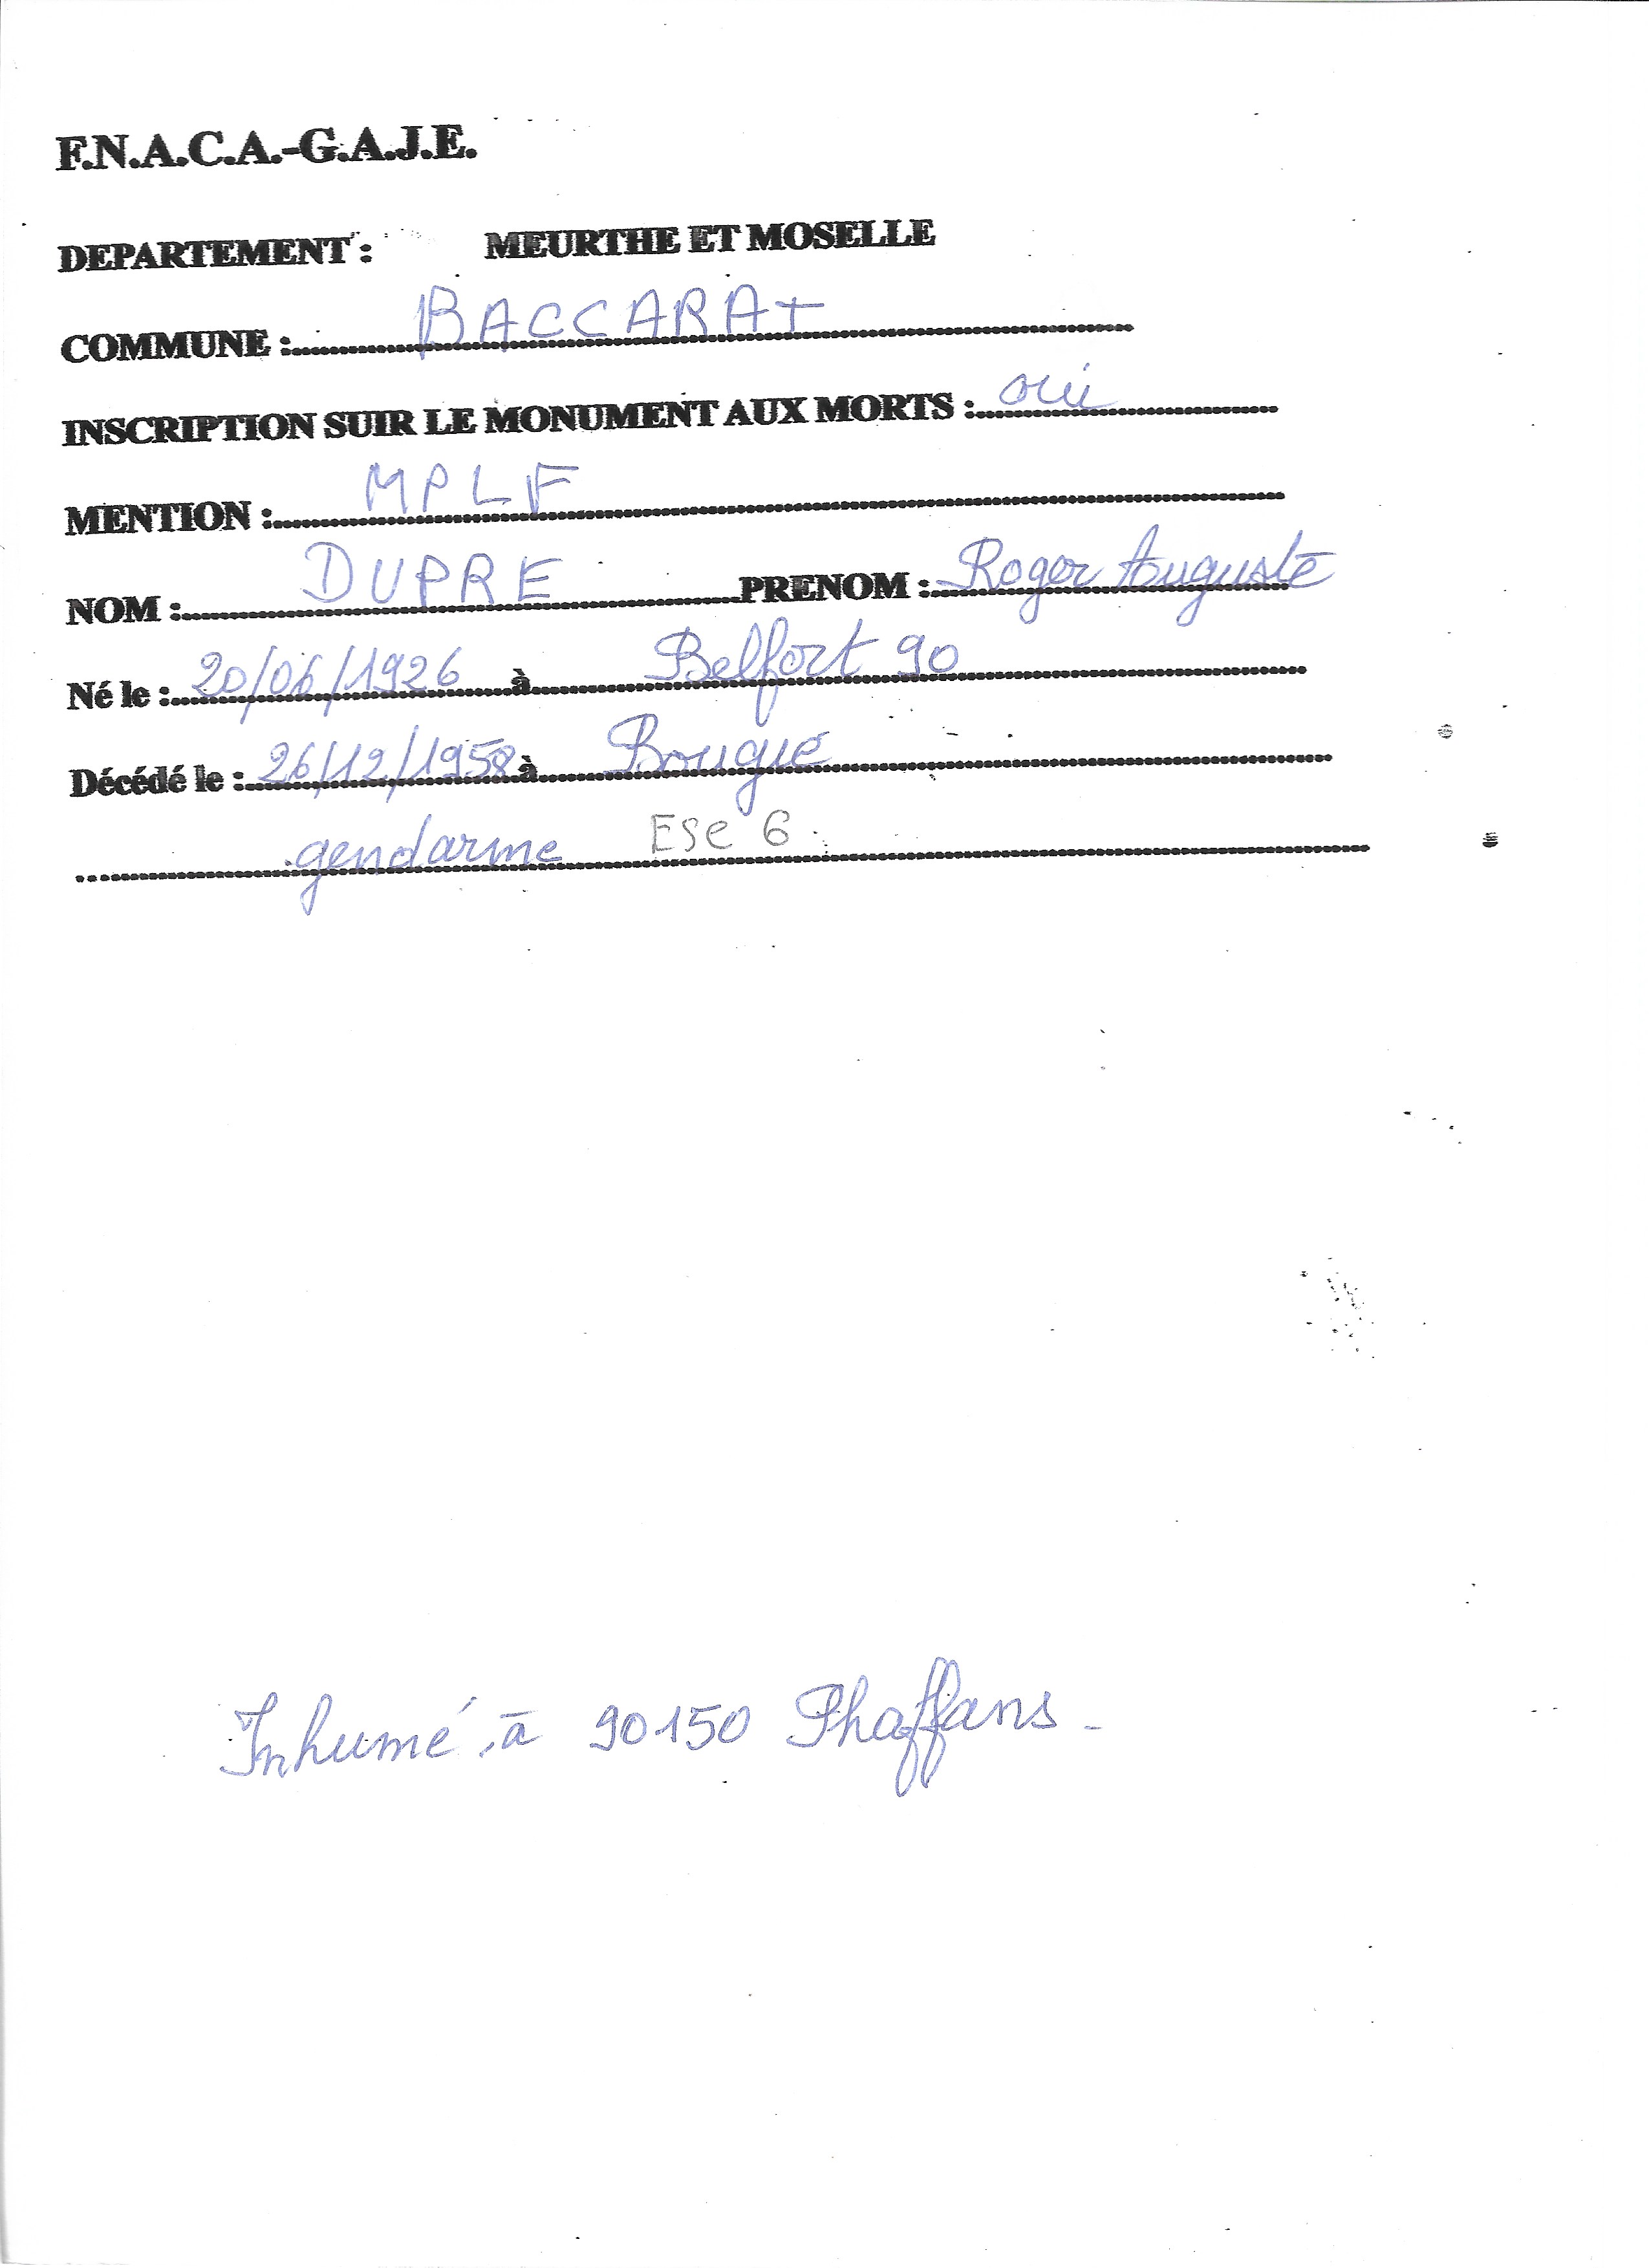 F.N.A.C.A.-G.A.J.E.
DEPARTEMENT : MEURTHE ET MOSELLE
COMMUNE : BACCARAT
INSCRIPTION SUIR LE MONUMENT AUX MORTS : oui
MENTION : MPLF
NOM : DUPRE PRENOM : Roger Auguste
Né le : 20/06/1926 à Belfort 90
Décédé le : 26/12/1958 à Bougie
gendarme ESC 6
Inhumé à 90150 Phaffans -